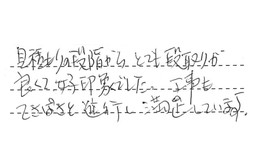 見積もりの段階から、とても段取りが
良くて好印象でした。工事も
てきぱきと進行し満足しています。